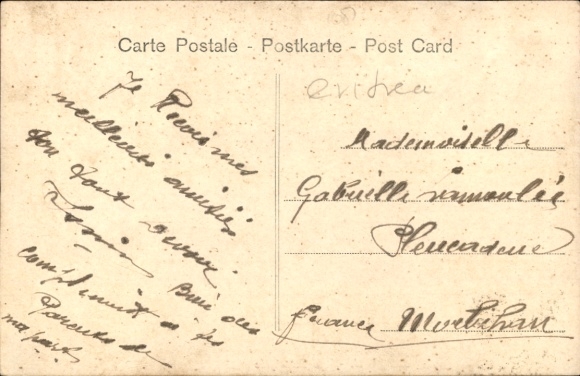 Carte Postale - Postkarte - Post Card
eritrea
Je Recois mes
meilleures amitiés
ton tout devoué
Bien des
compliments a tes
Parents de
ma part
Mademoiselle
Gabrielle
Pleucadeuc
france Morbihan